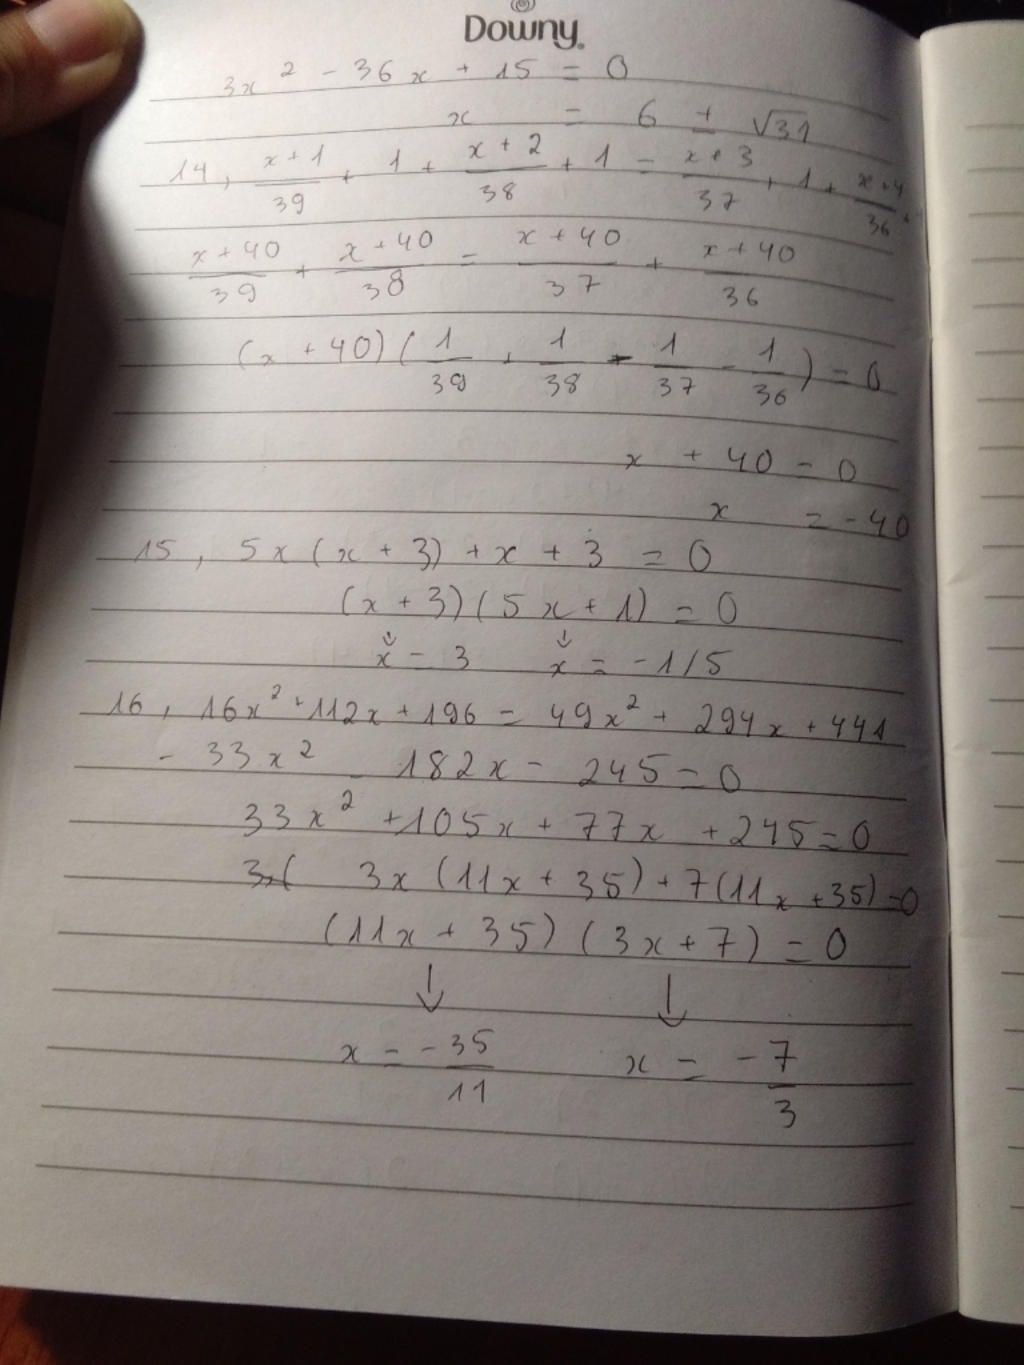 Downy
3x² - 36x + 15 = 0
x = 6 ± √31
14, (x+1)/39 + 1 + (x+2)/38 + 1 = (x+3)/37 + 1 + (x+4)/36 +
(x+40)/39 + (x+40)/38 = (x+40)/37 + (x+40)/36
(x + 40)(1/39 + 1/38 - 1/37 - 1/36) = 0
x + 40 = 0
x = -40
15, 5x(x + 3) + x + 3 = 0
(x + 3)(5x + 1) = 0
x = 3 x = -1/5
16, 16x² + 112x + 196 = 49x² + 294x + 441
- 33x² - 182x - 245 = 0
33x² + 105x + 77x + 245 = 0
3x(11x + 35) + 7(11x + 35) = 0
(11x + 35)(3x + 7) = 0
x = -35/11 x = -7/3